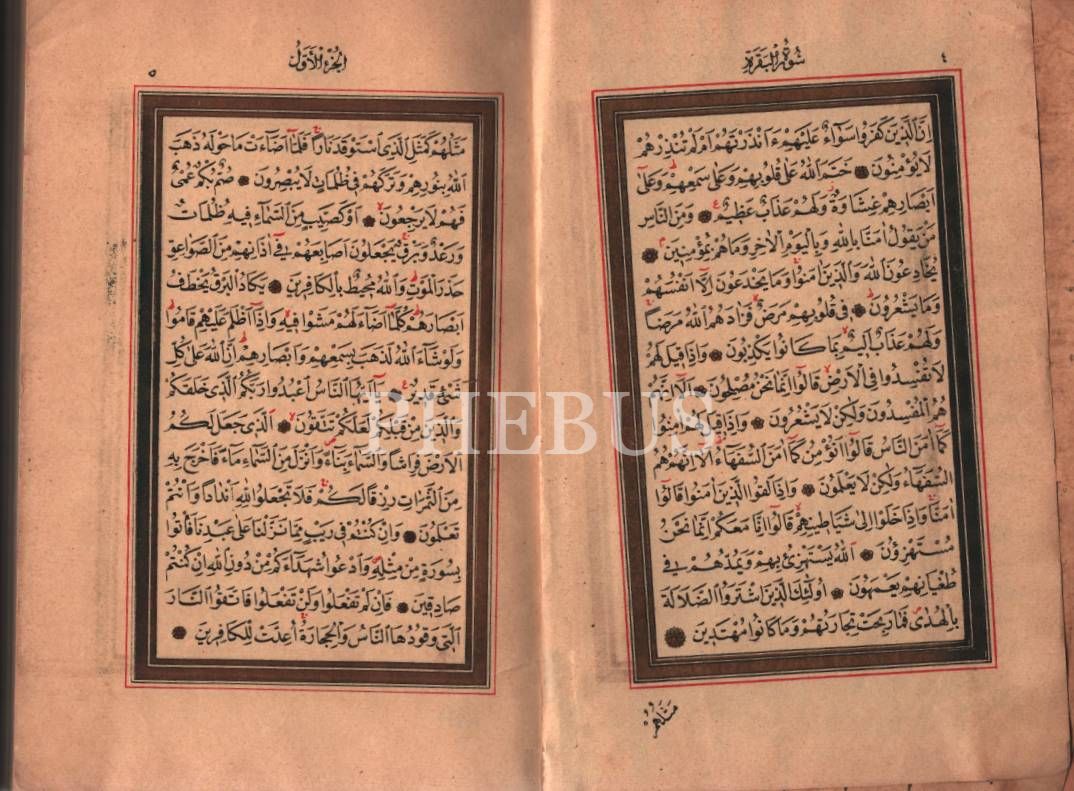 ٤
سُورَةُ الْبَقَرَةِ
اِنَّ الَّذ۪ينَ كَفَرُوا سَوَٓاءٌ عَلَيْهِمْ ءَاَنْذَرْتَهُمْ اَمْ لَمْ تُنْذِرْهُمْ
لَا يُؤْمِنُونَ خَتَمَ اللّٰهُ عَلٰى قُلُوبِهِمْ وَعَلٰى سَمْعِهِمْ وَعَلٰٓى
اَبْصَارِهِمْ غِشَاوَةٌ وَلَهُمْ عَذَابٌ عَظ۪يمٌ وَمِنَ النَّاسِ
مَنْ يَقُولُ اٰمَنَّا بِاللّٰهِ وَبِالْيَوْمِ الْاٰخِرِ وَمَا هُمْ بِمُؤْمِن۪ينَ
يُخَادِعُونَ اللّٰهَ وَالَّذ۪ينَ اٰمَنُوا وَمَا يَخْدَعُونَ اِلَّٓا اَنْفُسَهُمْ
وَمَا يَشْعُرُونَ ف۪ي قُلُوبِهِمْ مَرَضٌ فَزَادَهُمُ اللّٰهُ مَرَضًا
وَلَهُمْ عَذَابٌ اَل۪يمٌ بِمَا كَانُوا يَكْذِبُونَ وَاِذَا ق۪يلَ لَهُمْ
لَا تُفْسِدُوا فِي الْاَرْضِ قَالُٓوا اِنَّمَا نَحْنُ مُصْلِحُونَ اَلَٓا اِنَّهُمْ
هُمُ الْمُفْسِدُونَ وَلٰكِنْ لَا يَشْعُرُونَ وَاِذَا ق۪يلَ لَهُمْ اٰمِنُوا
كَمَٓا اٰمَنَ النَّاسُ قَالُٓوا اَنُؤْمِنُ كَمَٓا اٰمَنَ السُّفَهَٓاءُ اَلَٓا اِنَّهُمْ هُمُ
السُّفَهَٓاءُ وَلٰكِنْ لَا يَعْلَمُونَ وَاِذَا لَقُوا الَّذ۪ينَ اٰمَنُوا قَالُٓوا
اٰمَنَّا وَاِذَا خَلَوْا اِلٰى شَيَاط۪ينِهِمْ قَالُٓوا اِنَّا مَعَكُمْ اِنَّمَا نَحْنُ
مُسْتَهْزِؤُنَ اَللّٰهُ يَسْتَهْزِئُ بِهِمْ وَيَمُدُّهُمْ ف۪ي
طُغْيَانِهِمْ يَعْمَهُونَ اُولٰٓئِكَ الَّذ۪ينَ اشْتَرَوُا الضَّلَالَةَ
بِالْهُدٰى فَمَا رَبِحَتْ تِجَارَتُهُمْ وَمَا كَانُوا مُهْتَد۪ينَ
مَثَلُهُمْ
اَلْجُزْءُ الْاَوَّلُ
٥
مَثَلُهُمْ كَمَثَلِ الَّذِي اسْتَوْقَدَ نَارًا فَلَمَّٓا اَضَٓاءَتْ مَا حَوْلَهُ ذَهَبَ
اللّٰهُ بِنُورِهِمْ وَتَرَكَهُمْ ف۪ي ظُلُمَاتٍ لَا يُبْصِرُونَ صُمٌّ بُكْمٌ عُمْيٌ
فَهُمْ لَا يَرْجِعُونَ اَوْ كَصَيِّبٍ مِنَ السَّمَٓاءِ ف۪يهِ ظُلُمَاتٌ
وَرَعْدٌ وَبَرْقٌ يَجْعَلُونَ اَصَابِعَهُمْ ف۪ٓي اٰذَانِهِمْ مِنَ الصَّوَاعِقِ
حَذَرَ الْمَوْتِ وَاللّٰهُ مُح۪يطٌ بِالْكَافِر۪ينَ يَكَادُ الْبَرْقُ يَخْطَفُ
اَبْصَارَهُمْ كُلَّمَٓا اَضَٓاءَ لَهُمْ مَشَوْا ف۪يهِ وَاِذَٓا اَظْلَمَ عَلَيْهِمْ قَامُوا
وَلَوْ شَٓاءَ اللّٰهُ لَذَهَبَ بِسَمْعِهِمْ وَاَبْصَارِهِمْ اِنَّ اللّٰهَ عَلٰى كُلِّ
شَيْءٍ قَد۪يرٌ يَٓا اَيُّهَا النَّاسُ اعْبُدُوا رَبَّكُمُ الَّذ۪ي خَلَقَكُمْ
وَالَّذ۪ينَ مِنْ قَبْلِكُمْ لَعَلَّكُمْ تَتَّقُونَ اَلَّذ۪ي جَعَلَ لَكُمُ
الْاَرْضَ فِرَاشًا وَالسَّمَٓاءَ بِنَٓاءً وَاَنْزَلَ مِنَ السَّمَٓاءِ مَٓاءً فَاَخْرَجَ بِه۪
مِنَ الثَّمَرَاتِ رِزْقًا لَكُمْ فَلَا تَجْعَلُوا لِلّٰهِ اَنْدَادًا وَاَنْتُمْ
تَعْلَمُونَ وَاِنْ كُنْتُمْ ف۪ي رَيْبٍ مِمَّا نَزَّلْنَا عَلٰى عَبْدِنَا فَأْتُوا
بِسُورَةٍ مِنْ مِثْلِه۪ وَادْعُوا شُهَدَٓاءَكُمْ مِنْ دُونِ اللّٰهِ اِنْ كُنْتُمْ
صَادِق۪ينَ فَاِنْ لَمْ تَفْعَلُوا وَلَنْ تَفْعَلُوا فَاتَّقُوا النَّارَ
الَّت۪ي وَقُودُهَا النَّاسُ وَالْحِجَارَةُ اُعِدَّتْ لِلْكَافِر۪ينَ
PHEBUS